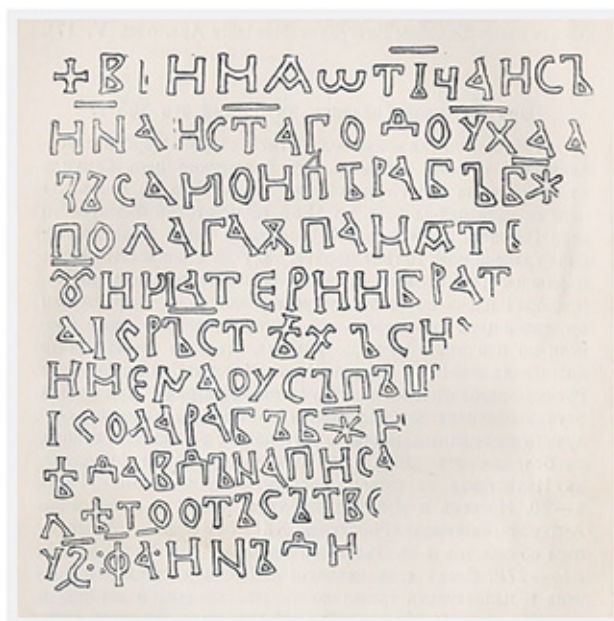 +ВІИМѦѠТІЧАИСЪ
ИNАИСТАГОДОУХАА
ЗЪСАМОИПЪРАБЪБЖ
ПОЛАГАѪПАМѦТЕ
ꙊИМАТЕРИИБРАТ
АІСРЪСТѢХЪСИ
ИМЕNАОУСЪПЪШ
ІСОЛАРАБЪБЖИ
ѢДАВДЪNАПИСА
ЛѢТООТЪСЪТВО
УЅ·ФА·ИNЪДИ